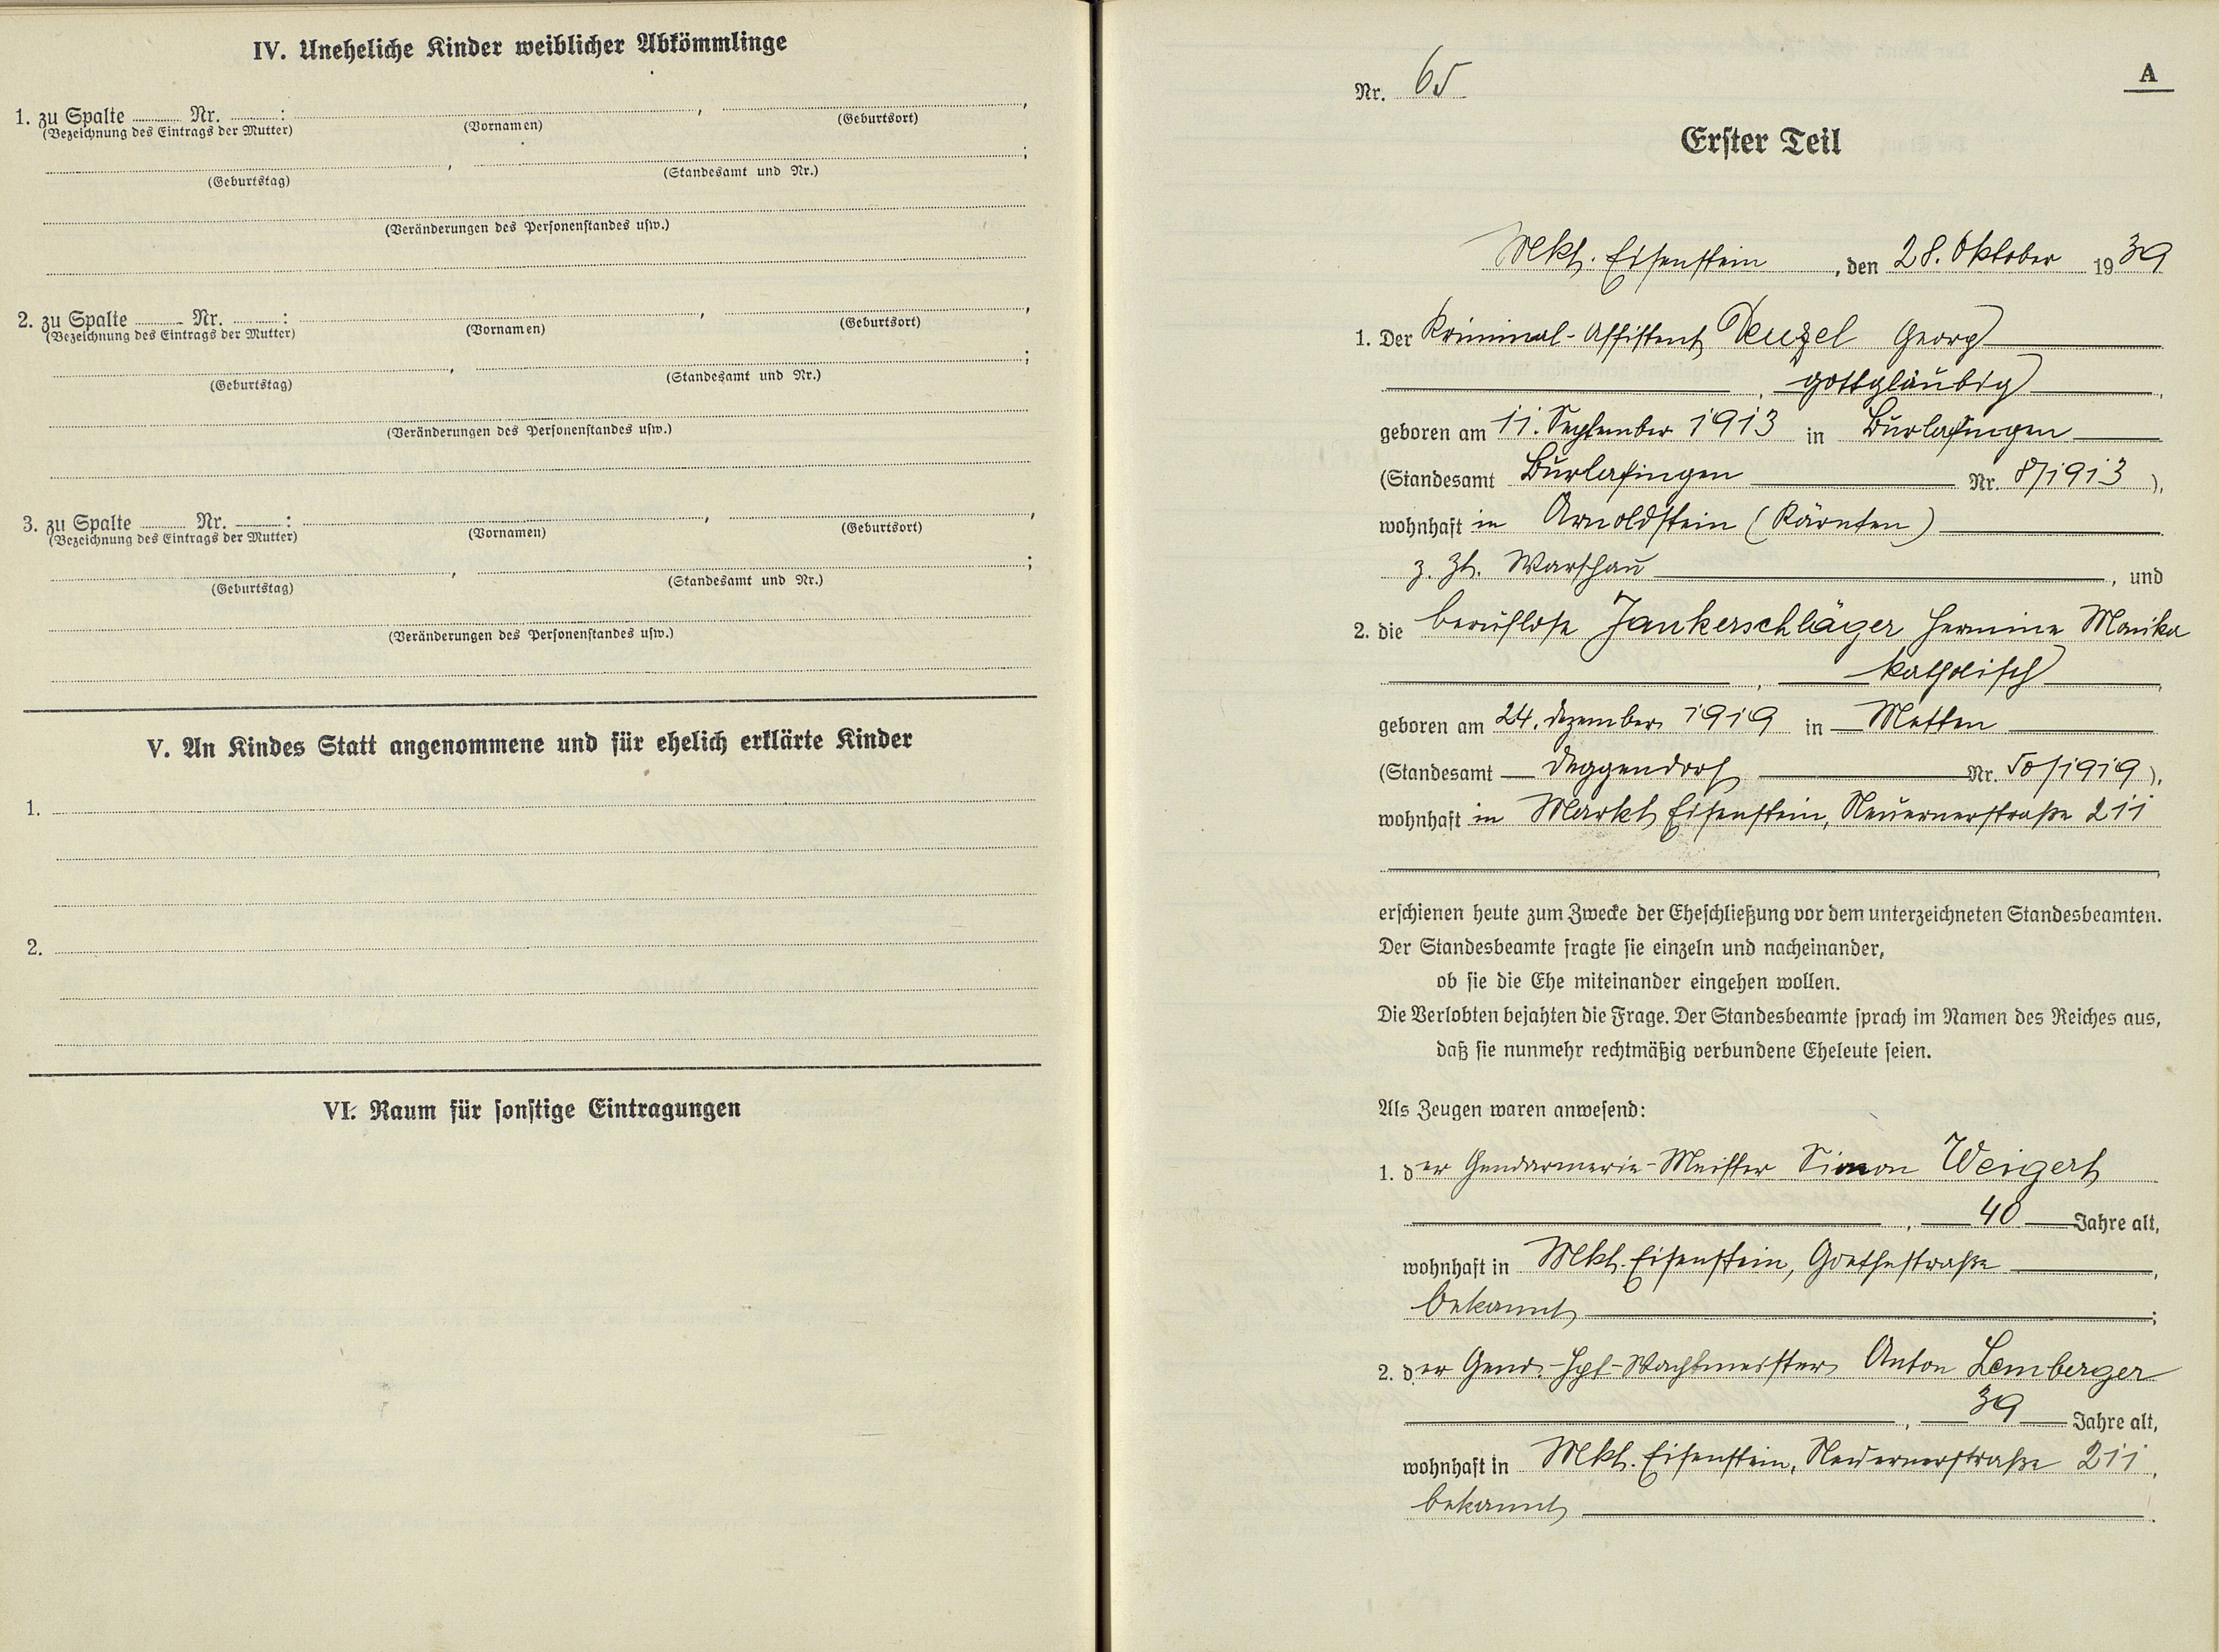 IV. Uneheliche Kinder weiblicher Abkömmlinge
1. zu Spalte ........ Nr. ........:
(Bezeichnung des Eintrags der Mutter) (Vornamen) , (Geburtsort) ,
(Geburtstag) , (Standesamt und Nr.) ;
(Veränderungen des Personenstandes usw.)
2. zu Spalte ........ Nr. ........:
(Bezeichnung des Eintrags der Mutter) (Vornamen) , (Geburtsort) ,
(Geburtstag) , (Standesamt und Nr.) ;
(Veränderungen des Personenstandes usw.)
3. zu Spalte ........ Nr. ........:
(Bezeichnung des Eintrags der Mutter) (Vornamen) , (Geburtsort) ,
(Geburtstag) , (Standesamt und Nr.) ;
(Veränderungen des Personenstandes usw.)
V. An Kindes Statt angenommene und für ehelich erklärte Kinder
1.
2.
VI. Raum für sonstige Eintragungen
A
Nr. 65
Erster Teil
Mkt. Eisenstein, den 28. Oktober 1939
1. Der Kriminal-Assistent Denzel Georg
, gottgläubig,
geboren am 11. September 1913 in Burlafingen
(Standesamt Burlafingen Nr. 8/1913),
wohnhaft in Arnoldstein (Kärnten)
z. Zt. Warschau, und
2. die berufslose Jankerschläger Hermine Monika
, katholisch,
geboren am 24. Dezember 1919 in Metten
(Standesamt Deggendorf Nr. 50/1919),
wohnhaft in Markt Eisenstein, Neuernerstraße 211
,
erschienen heute zum Zwecke der Eheschließung vor dem unterzeichneten Standesbeamten.
Der Standesbeamte fragte sie einzeln und nacheinander,
ob sie die Ehe miteinander eingehen wollen.
Die Verlobten bejahten die Frage. Der Standesbeamte sprach im Namen des Reiches aus,
daß sie nunmehr rechtmäßig verbundene Eheleute seien.
Als Zeugen waren anwesend:
1. der Gendarmerie-Meister Simon Weigert
, 40 Jahre alt,
wohnhaft in Mkt. Eisenstein, Goethestraße,
bekannt;
2. der Gend.-Hpt-Wachtmeister Anton Lemberger
, 39 Jahre alt,
wohnhaft in Mkt. Eisenstein, Neuernerstraße 211,
bekannt.